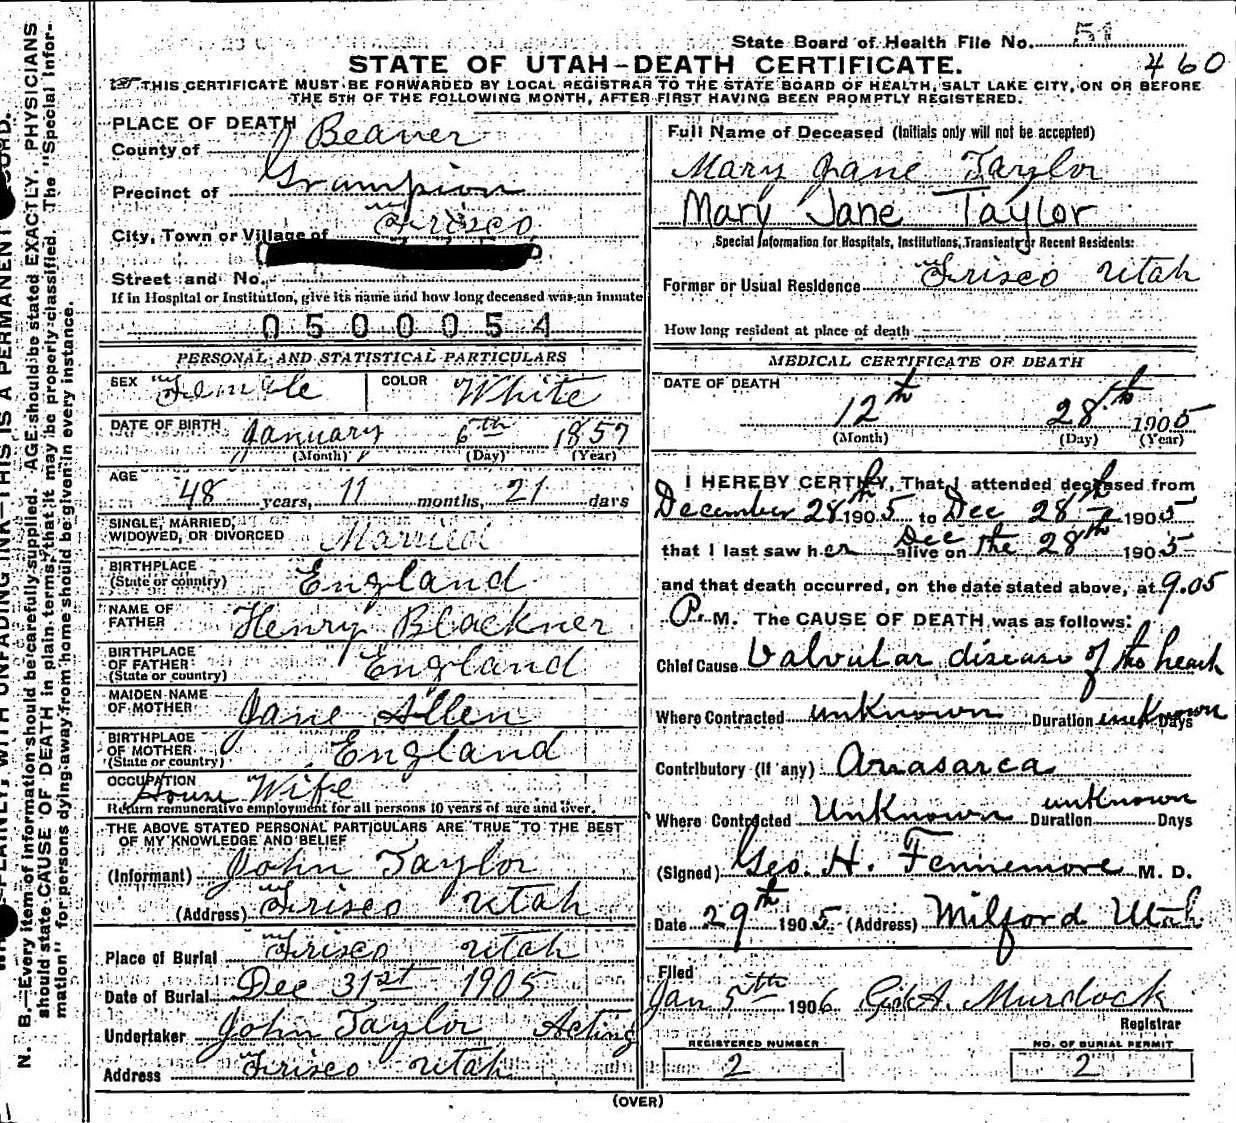 State Board of Health File No. 51
460
STATE OF UTAH-DEATH CERTIFICATE.
THIS CERTIFICATE MUST BE FORWARDED BY LOCAL REGISTRAR TO THE STATE BOARD OF HEALTH, SALT LAKE CITY, ON OR BEFORE
THE 5TH OF THE FOLLOWING MONTH, AFTER FIRST HAVING BEEN PROMPTLY REGISTERED.
PLACE OF DEATH
County of Beaver
Precinct of Grampion
City, Town or Village of Frisco
Street and No.
If in Hospital or Institution, give its name and how long deceased was an inmate
0500054
PERSONAL AND STATISTICAL PARTICULARS
SEX Female COLOR White
DATE OF BIRTH January 6th 1857
(Month) (Day) (Year)
AGE 48 years, 11 months, 21 days
SINGLE, MARRIED,
WIDOWED, OR DIVORCED Married
BIRTHPLACE
(State or country) England
NAME OF
FATHER Henry Blackner
BIRTHPLACE
OF FATHER
(State or country) England
MAIDEN NAME
OF MOTHER Jane Allen
BIRTHPLACE
OF MOTHER
(State or country) England
OCCUPATION
House Wife
Return remunerative employment for all persons 10 years of age and over.
THE ABOVE STATED PERSONAL PARTICULARS ARE TRUE TO THE BEST
OF MY KNOWLEDGE AND BELIEF
(Informant) John Taylor
(Address) Frisco Utah
Place of Burial Frisco Utah
Date of Burial Dec 31st 1905
Undertaker John Taylor Acting
Address Frisco Utah
Full Name of Deceased (Initials only will not be accepted)
Mary Jane Taylor
Mary Jane Taylor
Special Information for Hospitals, Institutions, Transients or Recent Residents:
Former or Usual Residence Frisco Utah
How long resident at place of death
MEDICAL CERTIFICATE OF DEATH
DATE OF DEATH
12th 28th 1905
(Month) (Day) (Year)
I HEREBY CERTIFY, That I attended deceased from
December 28th 1905 to Dec 28th 1905
that I last saw her alive on Dec the 28th 1905
and that death occurred, on the date stated above, at 9.05
P.M. The CAUSE OF DEATH was as follows:
Chief Cause Valvular disease of the heart
Where Contracted unknown Duration unknown Days
Contributory (if any) Anasarca
Where Contracted Unknown Duration unknown Days
(Signed) Geo. H. Fennemore M. D.
Date 29th 1905 (Address) Milford Utah
Filed
Jan 5th 1906 Murdock
Registrar
REGISTERED NUMBER
2
NO. OF BURIAL PERMIT
2
(OVER)
N. B.—Every item of information should be carefully supplied. AGE should be stated EXACTLY. PHYSICIANS
should state CAUSE OF DEATH in plain terms, that it may be properly classified. The "Special Infor-
mation" for persons dying away from home should be given in every instance.
PLAINLY, WITH UNFADING INK—THIS IS A PERMANENT